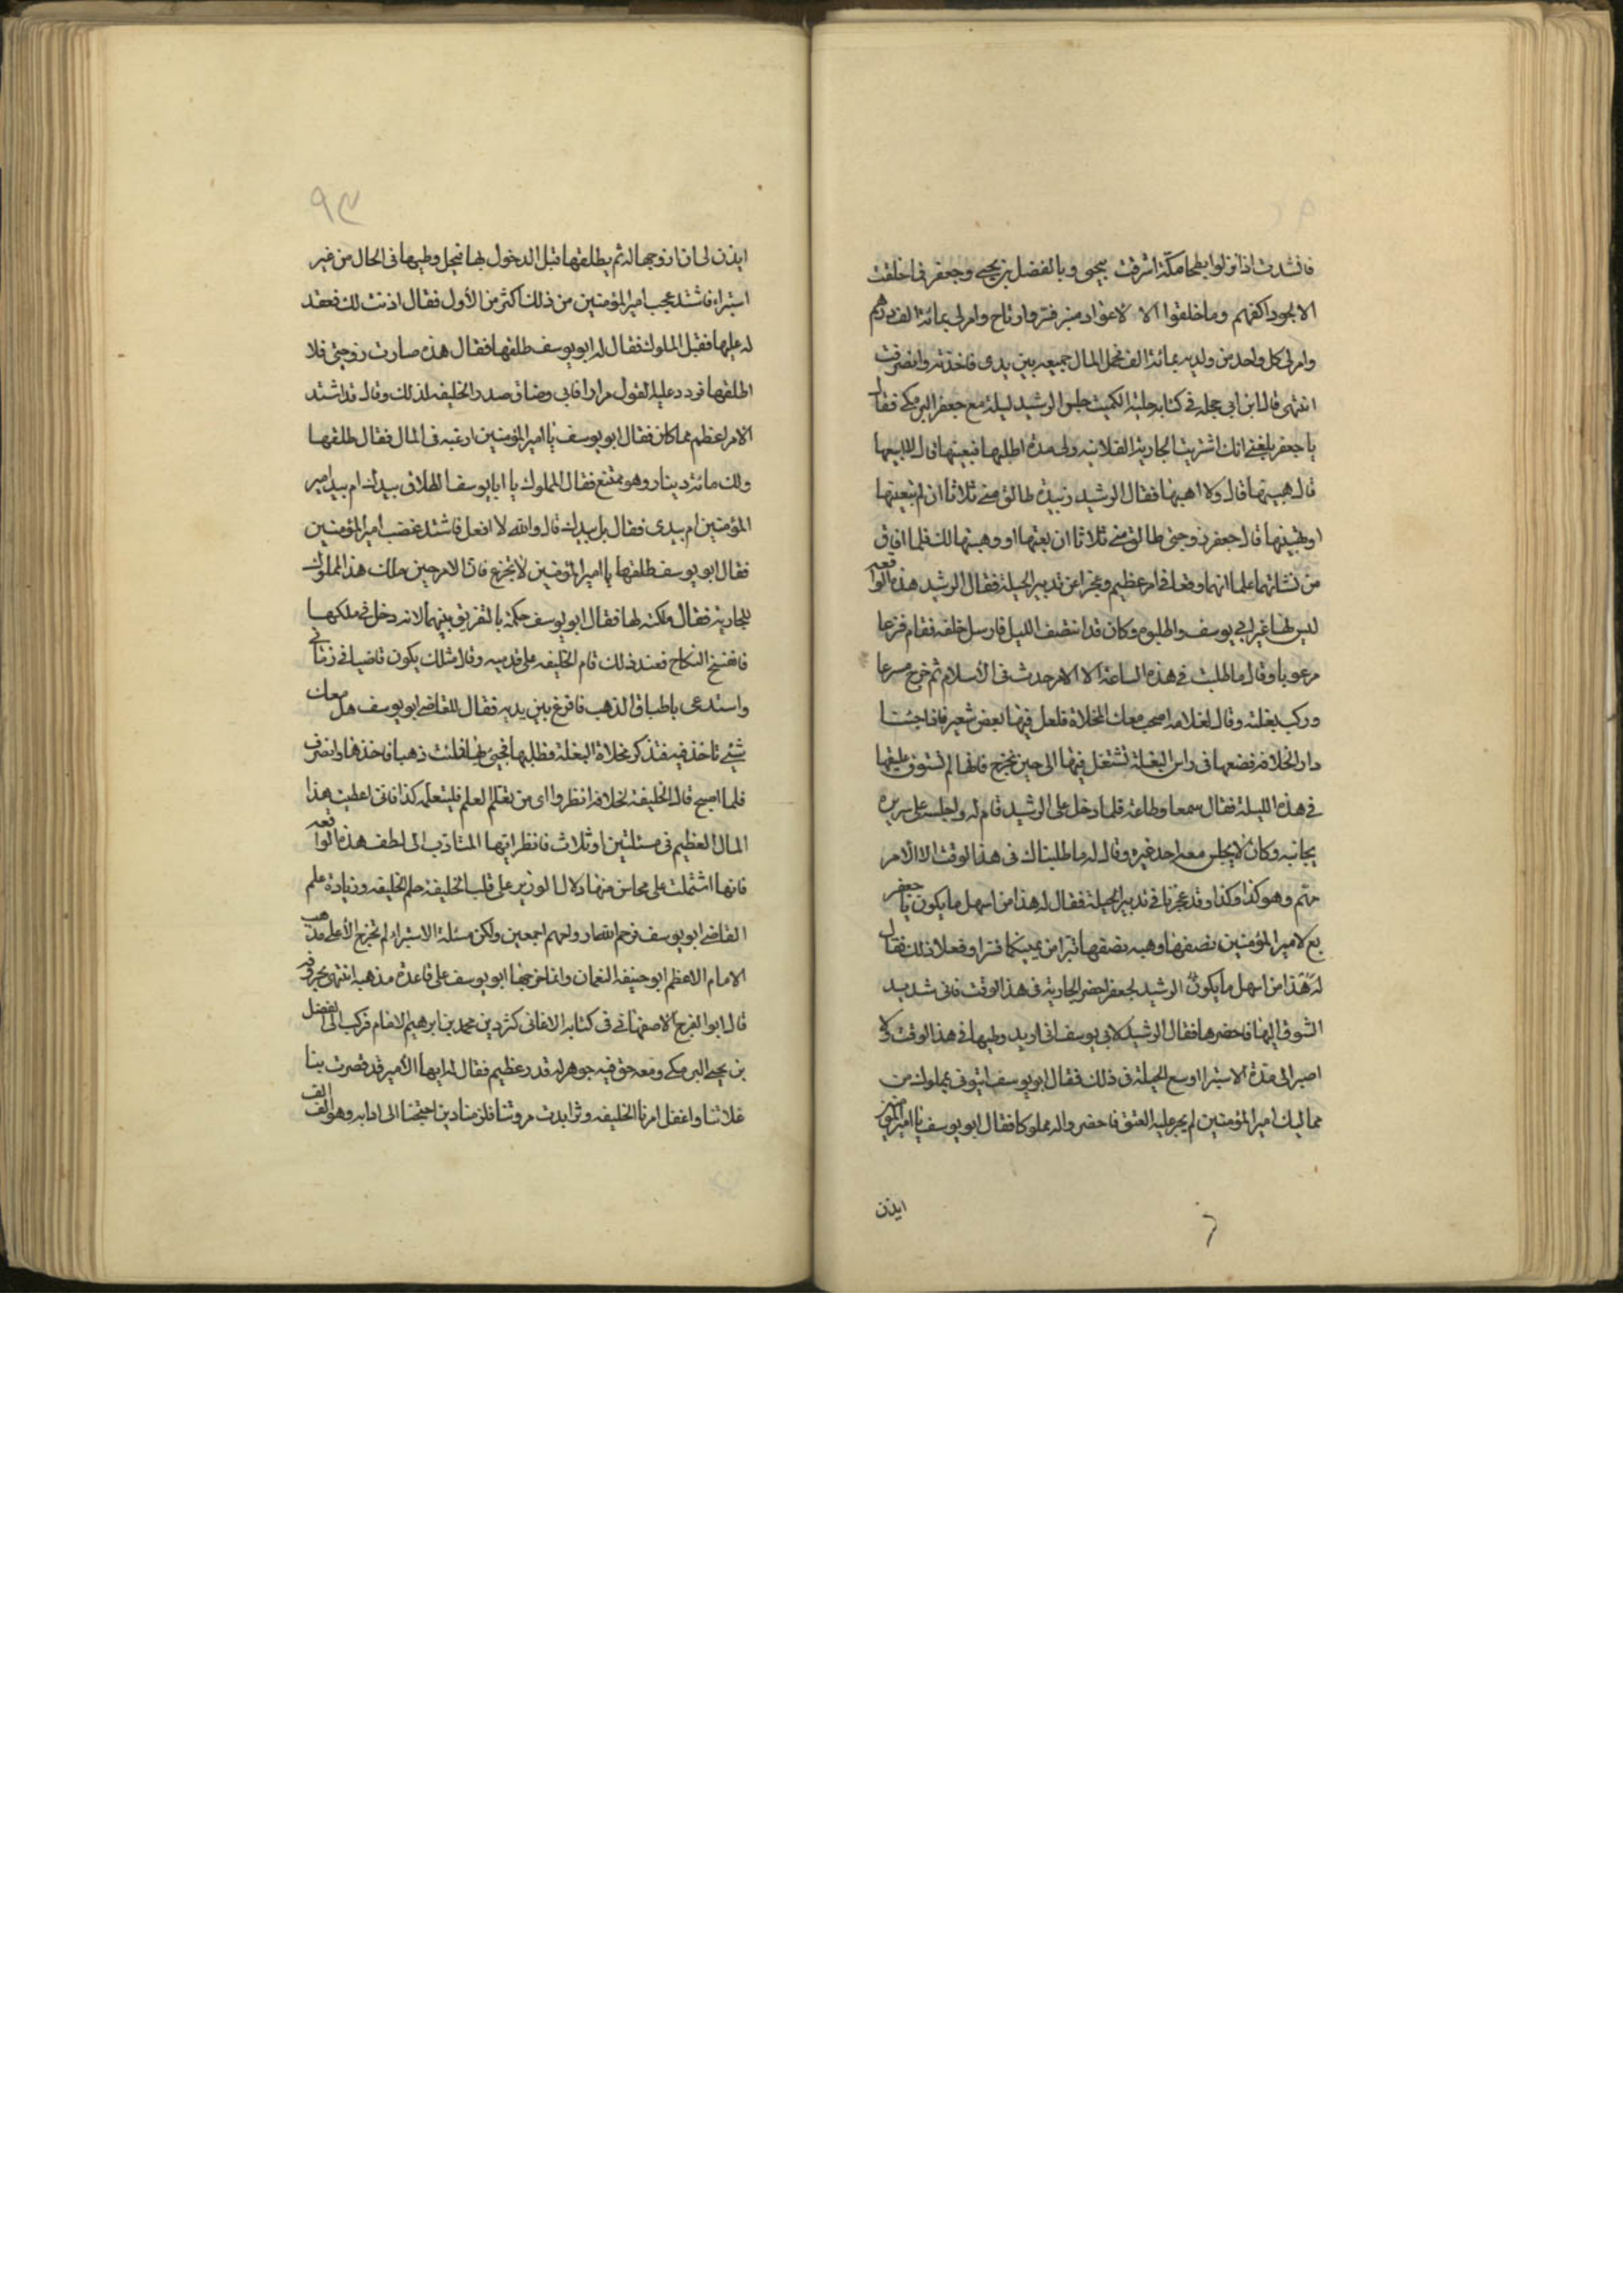 فانشدت اذا نزلوا بطحا مكة اشرقت بيحيى وبالفضل بن يحيى وجعفر فما خلقت
الا لجود اكفهم وما خلقوا الا لاعواد منبر فتر وارتاح وامر لى بمائة الف درهم
وامر لى كل واحد من ولديه بمائة الف فحمل المال جميعه بين يدى فاخذته وانصرفت
انتهى قال ابن ابى حجله فى كتابه حلية الكميت جلس الرشيد ليلة مع جعفر البرمكى فقال
يا جعفر بلغنى انك اشتريت الجارية الفلانيه ولى مدة اطلبها فبعينها قال لا ابيعها
قال هبينها قال ولا اهبها فقال الرشيد زبيدة طالق منى ثلاثا ان لم تبعينها
او تهبينها قال جعفر زوجتى طالق منى ثلاثا ان بعتها او وهبتها لك فلما افاق
من نشاتهما علما انهما وقعا فى امر عظيم وعجزا عن تدبير الحيلة فقال الرشيد هذه الواقعه
ليس لها غير ابى يوسف واطلبوه وكان قد انتصف الليل فارسل خلفه فقام فزعا
مرعوبا وقال ما طلبت فى هذه الساعة الا لامر حدث فى الاسلام ثم خرج مسرعا
وركب بغلته وقال لغلامه اصحب معك المخلاة فلعل فيها بعض شعير فاذا جئنا
دار الخلافه فضعها فى راس البغلة تشتغل فيها الى حين نخرج فانها لم تستوف عليقها
فى هذه الليلة فقال سمعا وطاعة فلما دخل على الرشيد قام له واجلسه على سريره
بجانبه وكان لا يجلس معه احد غيره وقال له ما طلبناك فى هذا الوقت الا الامر
مهم وهو كذا وكذا وقد عجزنا فى تدبير الحيلة فقال له هذا من اسهل ما يكون يا جعفر
بع لامير المؤمنين نصفها وهبه نصفها تبرا من يمينكما فسرا وفعلا ذلك فقال
له هذا من اسهل ما يكون الرشيد لجعفر احضر الجارية فى هذا الوقت فانى شديد
الشوق اليها فاحضرها فقال الرشيد لابى يوسف انى اريد وطيها فى هذا الوقت
اصبر الى مدة الاستبرا اوسع الحيلة فى ذلك فقال ابو يوسف ايتونى بمملوك من
مماليك امير المؤمنين لم يجر عليه العتق فاحضر واله مملوكا فقال ابو يوسف يا امير المؤمنين
ايذن
٩٣
ايذن لى ان ازوجها له ثم يطلقها قبل الدخول بها فيحل وطيها فى الحال من غير
استبراء فاشتد عجب امير المؤمنين من ذلك اكثر من الأول فقال اذنت لك فعقد
له عليها فقبل المملوك فقال له ابو يوسف طلقها فقال هذه صارت زوجتى فلا
اطلقها فردد عليه القول مرارا فابى وضاق صدر الخليفه لذلك وقال قد اشتد
الامر اعظم مما كان فقال ابو يوسف يا امير المؤمنين ارغبه فى المال فقال طلقها
ولك مائة دينار وهو ممتنع فقال المملوك يا ابا يوسف الطلاق بيدك ام بيد امير
المؤمنين ام بيدى فقال بل بيدك قال والله لا افعل فاشتد غضب امير المؤمنين
فقال ابو يوسف طلقها يا امير المؤمنين لا تجزع فان الامر حين ملك هذا المملوك
للجارية فقال ملكته لها فقال ابو يوسف حكمت بالتفريق بينهما لانه دخل فى ملكها
فانفسخ النكاح فعند ذلك قام الخليفه على قدميه وقال مثلك يكون قاضيا فى زمانى
واستدعى باطباق الذهب فافرغ بين يديه فقال للقاضى ابو يوسف هل معك
شيئ تاخذ فيه فتذكر مخلاة البغلة فطلبها فجيئ لها فملئت ذهبا فاخذها وانصرف
فلما اصبح قال الخليفة لخلافه انظروا اى من يعلم لعلم فليتعلم كذا فانى اعطيت هذا
المال العظيم فى مسئلتين او ثلاث فانظر ايها المتادب الى لطف هذه الواقعه
فانها اشتملت على محاسن منها دلال الوزير على قلب الخليفة حلم الخليفه وزيادة علم
القاضى ابو يوسف فرحم ارواحهم اجمعين ولكن مسئلة الاستبراء لم تخرج الا على مذهب
الامام الاعظم ابو حنيفه النعمان وانما خرجها ابو يوسف على قاعدة مذهبه انتهى بحروفه
قال ابو الفرج الاصفهانى فى كتابه الاغانى كثر دين محمد بن ابرهيم الامام فركب الى الفضل
بن يحيى البرمكى ومعه حق فيه جوهر له قدر عظيم فقال له ايها الأمير قد قصرت بنا
غلاتنا واغفل امرنا الخليفه وتزايدت مروتنا فلزمنا دين احتجنا الى ادايه وهو الف الف